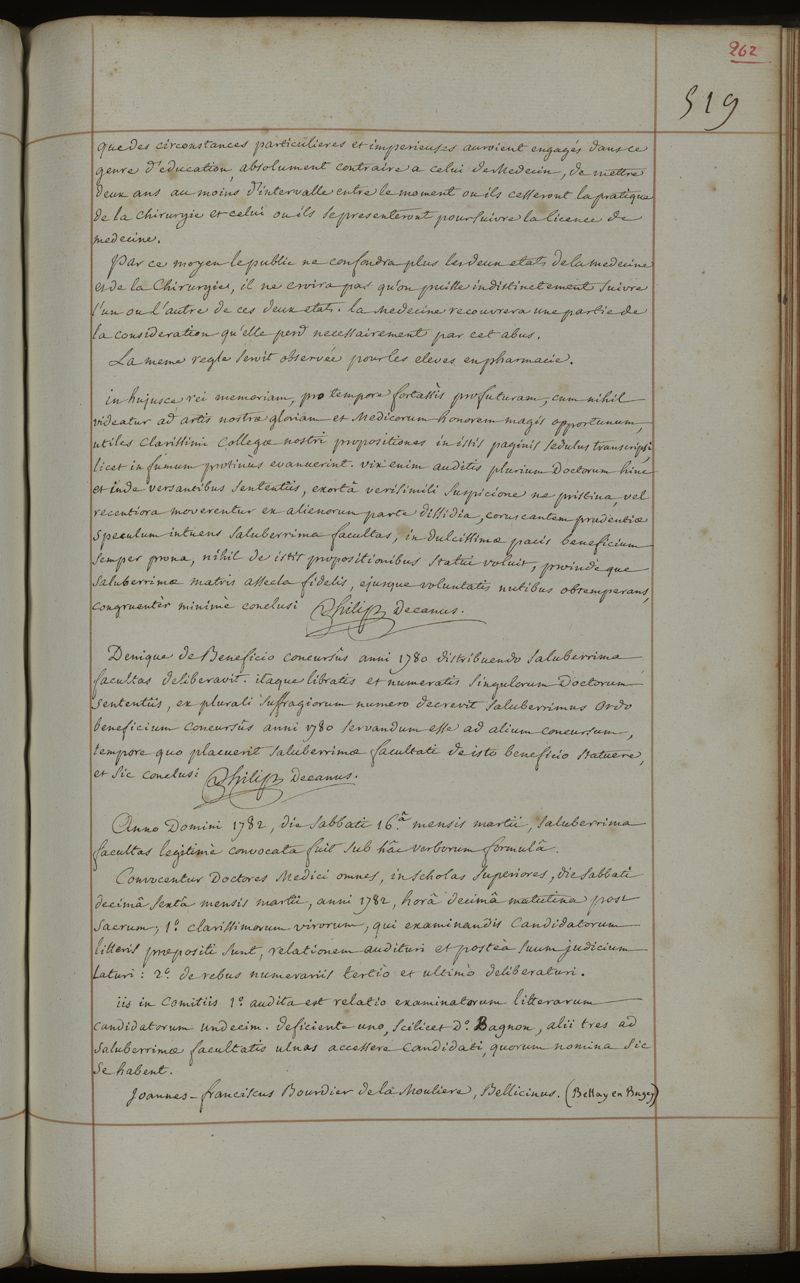 262
519
que des circonstances particulieres et imperieuses auroient engagés dans ce
genre d'education, absolument contraire a celui de Medecin, de mettre
deux ans au moins d'intervalle entre le moment ou ils cesseront la pratique
de la chirurgie et celui ou ils se presenteront pour suivre la licence de
medecine.
Par ce moyen le public ne confondra plus les deux etats de la medecine
et de la Chirurgie, il ne croira pas qu'on puisse indistinctement suivre
l'un ou l'autre de ces deux etats. la Medecine recouvrera une partie de
la consideration qu'elle perd necessairement par cet abus.
La meme regle seroit observée pour les eleves en pharmacie.
in hujusce rei memoriam, pro tempore fortassis profuturam, cum nihil
videatur ad artis nostræ gloriam et Medicorum honorem magis opportunum,
utiles Clarissimi Collegæ nostri propositiones in istis paginis sedulus transcripsi,
licet in fumum protinus evanuerint. vix enim auditis plurium Doctorum hinc
et inde versantibus sententiis, exortâ verisimili suspicione ne pristina, vel
recentiora moverentur ex alienorum parte dissidia, coruscantem prudentiæ
speculum intuens saluberrima facultas, in dulcissimæ pacis beneficium
semper prona, nihil de istis propositionibus statui voluit, proindeque
saluberrimæ matris assecla fidelis, ejusque voluntatis nutibus obtemperans,
congruentèr minimè conclusi Philip Decanus.
Denique de Beneficio concursûs anni 1780 distribuendo saluberrima
facultas deliberavit. itaque libratis et numeratis singulorum Doctorum
sententiis, ex plurali suffragiorum numero decrevit saluberrimus ordo
beneficium concursûs anni 1780 servandum esse ad alium concursum,
tempore quo placuerit saluberrimæ facultati de isto beneficio statuere,
et sic conclusi Philip Decanus.
Anno Domini 1782, die sabbati 16.â mensis martii, saluberrima
facultas legitimè convocata fuit sub hâc verborum formulâ.
Convocentur Doctores Medici omnes, in scholas superiores, die sabbati
decimâ sextâ mensis martii, anni 1782, horâ decimâ matutina post
sacrum, 1.º clarissimorum virorum, qui examinandis Candidatorum
litteris præpositi sunt, relationem audituri et posteà suum judicium
laturi: 2.º de rebus numerariis tertio et ultimò deliberaturi.
iis in Comitiis 1.º audita est relatio examinatorum litterarum
candidatorum undecim. deficiente uno, scilicet D.º Bagnon, alii tres ad
saluberrimæ facultatis ulnas accessere candidati, quorum nomina sic
se habent.
Joannes-franciscus Bourdier de la Mouliere, Bellicinus. (Bellay en Bugey)